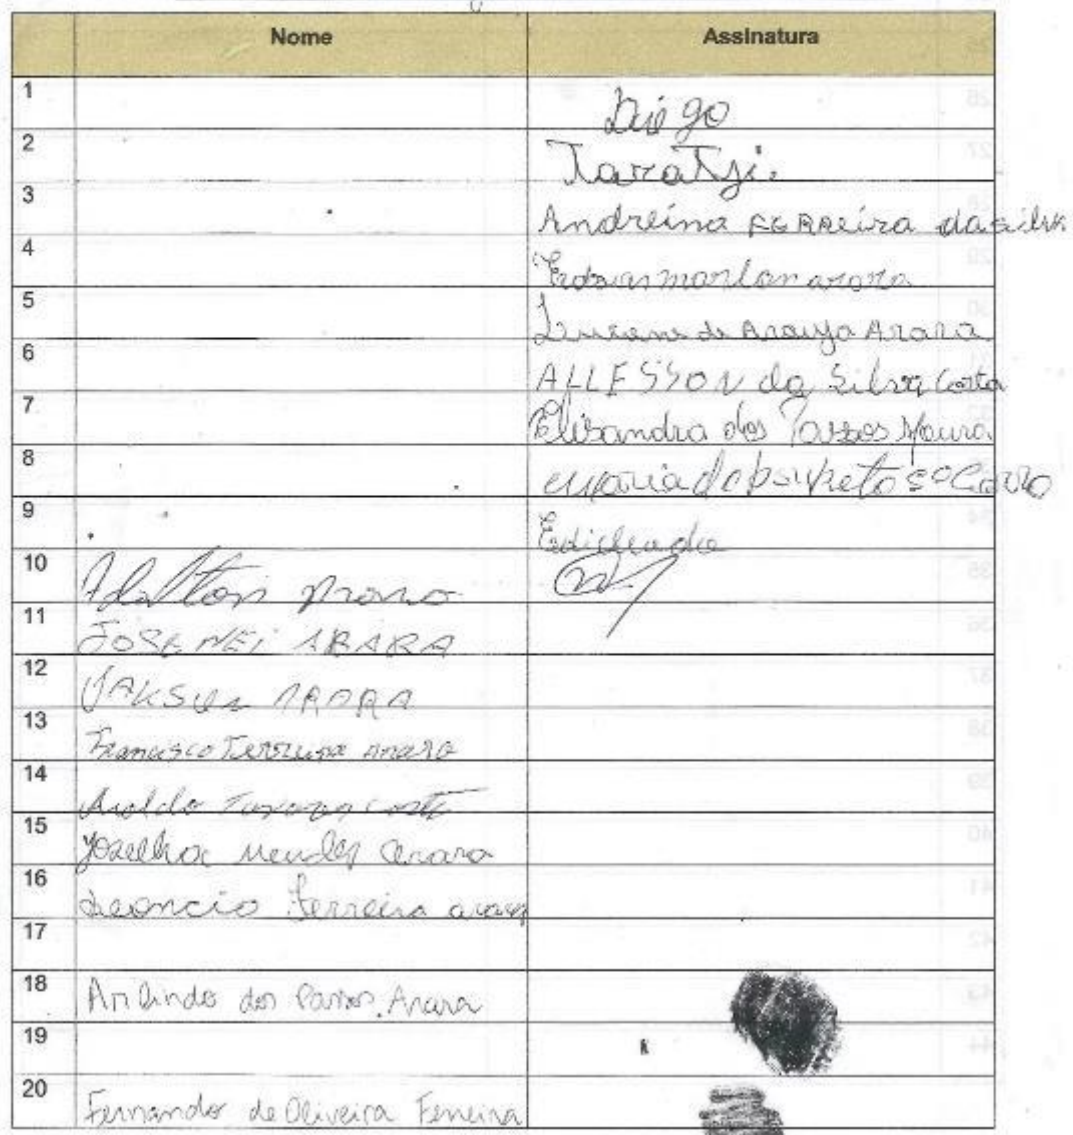 Nome Assinatura
1 Diego
2 Taratji.
3 Andreina FERReira da silva
4 marlon arara
5 Luciana de Araujo Arara
6 ALLESSON da Silva Costa
7 Elisandra dos Passos Moura
8 Socorro
9
10 Adalton Arara
11 JOSENEI ARARA
12 JAKSON ARARA
13 Francisco Ferreira Arara
14 Aroldo
15 Mendes Arara
16 Leoncio Ferreira
17
18 Arlindo dos Passos Arara
19
20 Fernando de Oliveira Ferreira